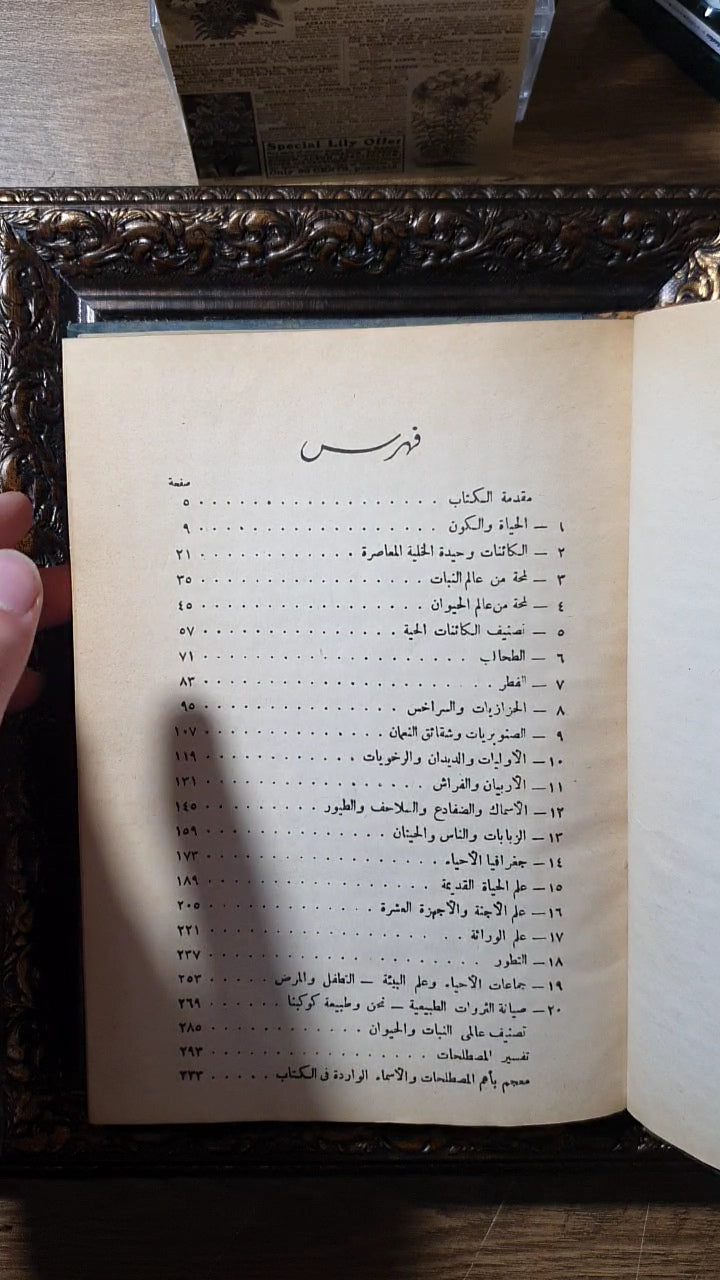 Special Lily Offer
فهرس
صفحة
مقدمة الكتاب . . . . . . . . . . . . . . . . . ٥
١ — الحياة والكون . . . . . . . . . . . . . . . . . ٩
٢ — الكائنات وحيدة الخلية المعاصرة . . . . . . . . . . . ٢١
٣ — لمحة من عالم النبات . . . . . . . . . . . . . . . . ٣٥
٤ — لمحة من عالم الحيوان . . . . . . . . . . . . . . . . ٤٥
٥ — تصنيف الكائنات الحية . . . . . . . . . . . . . . ٥٧
٦ — الطحالب . . . . . . . . . . . . . . . . . . . ٧١
٧ — الفطر . . . . . . . . . . . . . . . . . . . . ٨٣
٨ — الحزازيات والسراخس . . . . . . . . . . . . . . ٩٥
٩ — الصنوبريات وشقائق النعمان . . . . . . . . . . . . . ١٠٧
١٠ — الأوليات والديدان والرخويات . . . . . . . . . . . . ١١٩
١١ — الأربيان والفراش . . . . . . . . . . . . . . . . ١٣١
١٢ — الأسماك والضفادع والسلاحف والطيور . . . . . . . . . ١٤٥
١٣ — الزبابات والناس والحيتان . . . . . . . . . . . . . ١٥٩
١٤ — جغرافيا الأحياء . . . . . . . . . . . . . . . . ١٧٣
١٥ — علم الحياة القديمة . . . . . . . . . . . . . . . . ١٨٩
١٦ — علم الأجنة والأجهزة العشرة . . . . . . . . . . . . . ٢٠٥
١٧ — علم الوراثة . . . . . . . . . . . . . . . . . . ٢٢١
١٨ — التطور . . . . . . . . . . . . . . . . . . . . ٢٣٧
١٩ — جماعات الأحياء وعلم البيئة — التطفل والمرض . . . . . ٢٥٣
٢٠ — صيانة الثروات الطبيعية — نحن وطبيعة كوكبنا . . . . . ٢٦٩
تصنيف عالمي النبات والحيوان . . . . . . . . . . . . ٢٨٥
تفسير المصطلحات . . . . . . . . . . . . . . . . ٢٩٣
معجم بأهم المصطلحات والأسماء الواردة في الكتاب . . . . . ٣٣٣